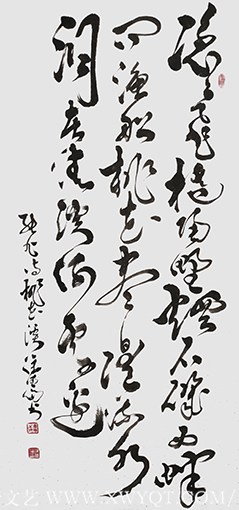 隐隐飞桥隔野烟石矶西畔
问渔船桃花尽日随流水
洞在清溪何处边
张旭诗桃花溪
文艺 WWW.XWYQT.COM